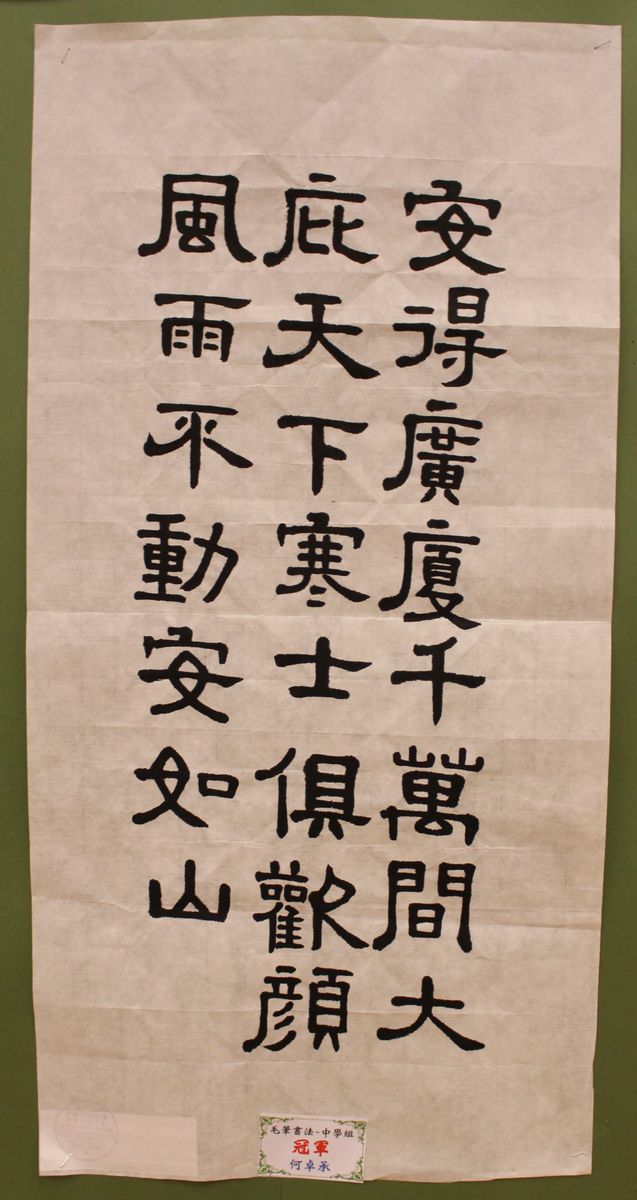 安得廣廈千萬間大
庇天下寒士俱歡顏
風雨不動安如山
毛筆書法-中學組
冠軍
何卓承